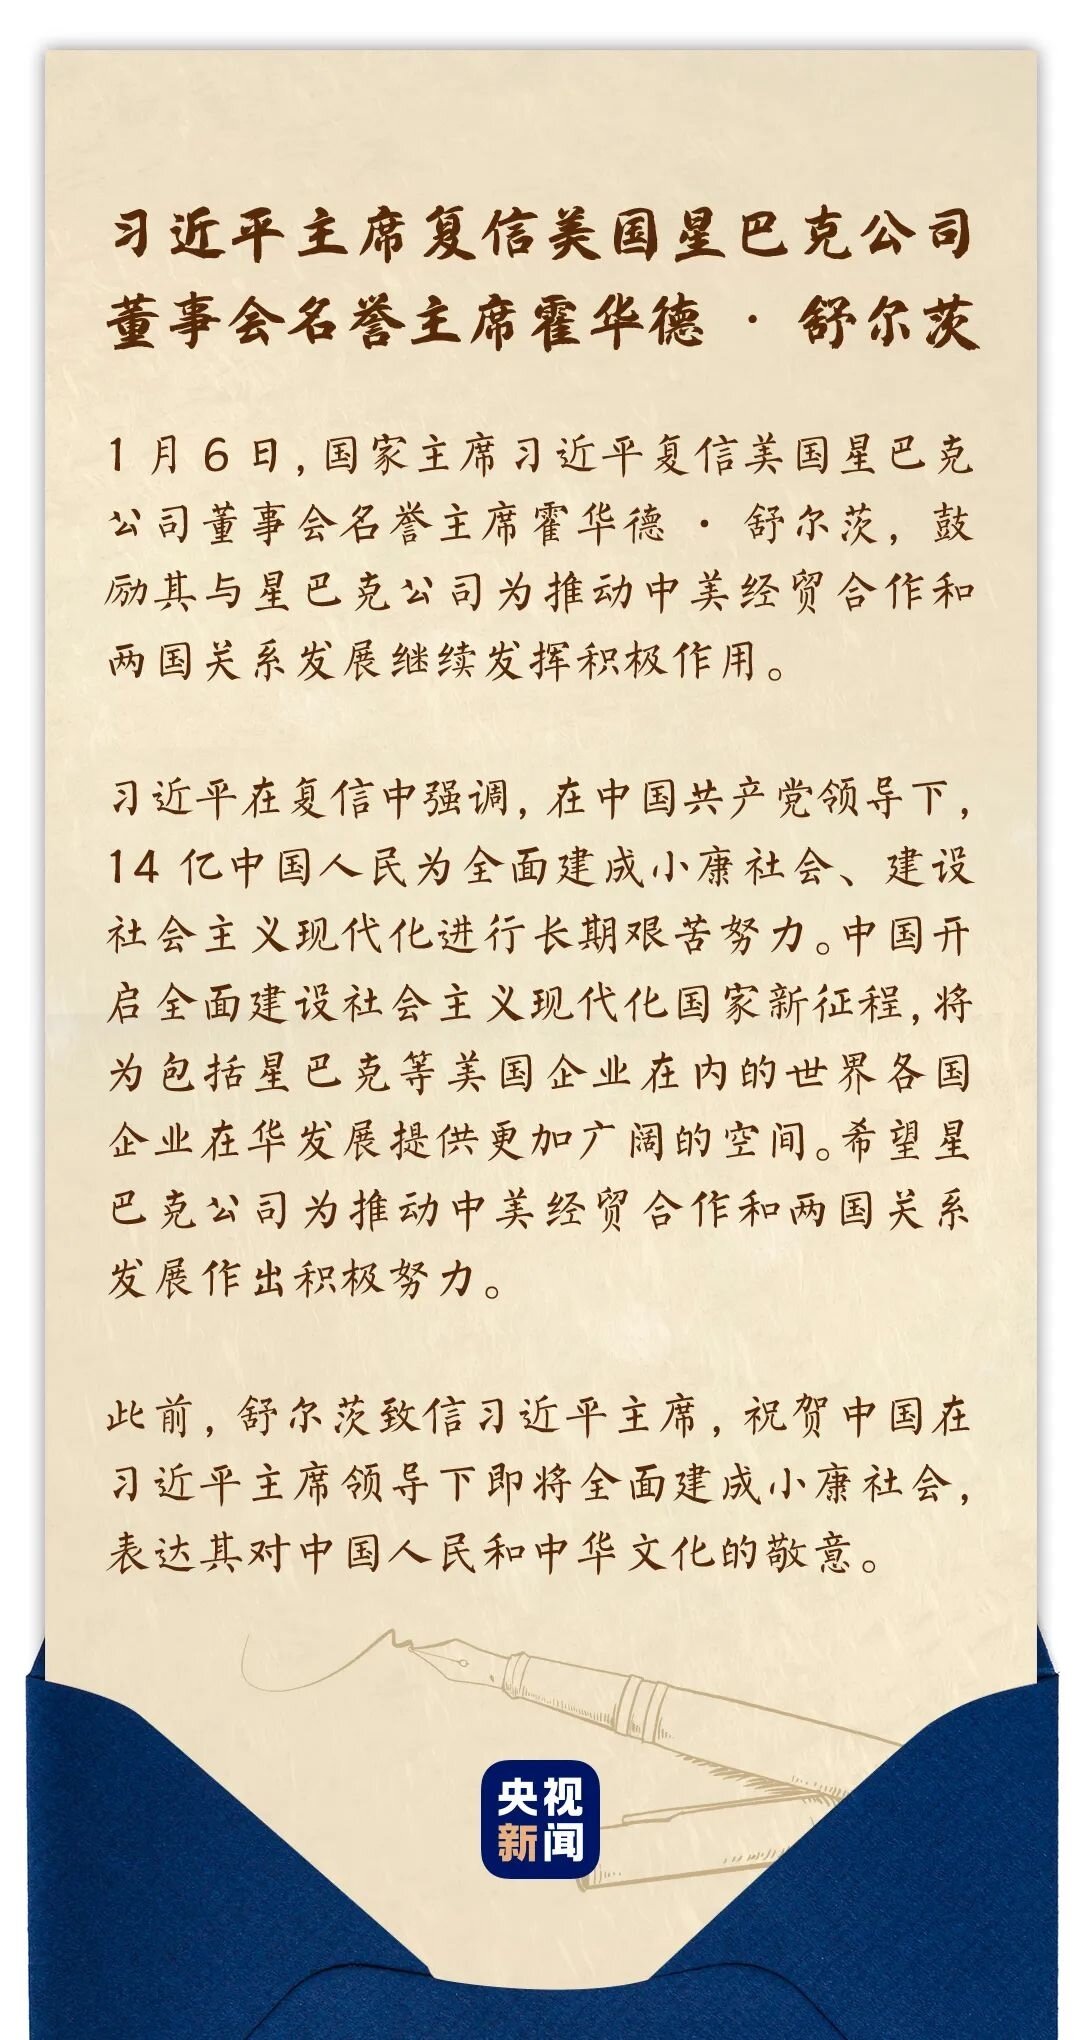 习近平主席复信美国星巴克公司
董事会名誉主席霍华德·舒尔茨
1月6日，国家主席习近平复信美国星巴克
公司董事会名誉主席霍华德·舒尔茨，鼓
励其与星巴克公司为推动中美经贸合作和
两国关系发展继续发挥积极作用。
习近平在复信中强调，在中国共产党领导下，
14亿中国人民为全面建成小康社会、建设
社会主义现代化进行长期艰苦努力。中国开
启全面建设社会主义现代化国家新征程，将
为包括星巴克等美国企业在内的世界各国
企业在华发展提供更加广阔的空间。希望星
巴克公司为推动中美经贸合作和两国关系
发展作出积极努力。
此前，舒尔茨致信习近平主席，祝贺中国在
习近平主席领导下即将全面建成小康社会，
表达其对中国人民和中华文化的敬意。
央视
新闻